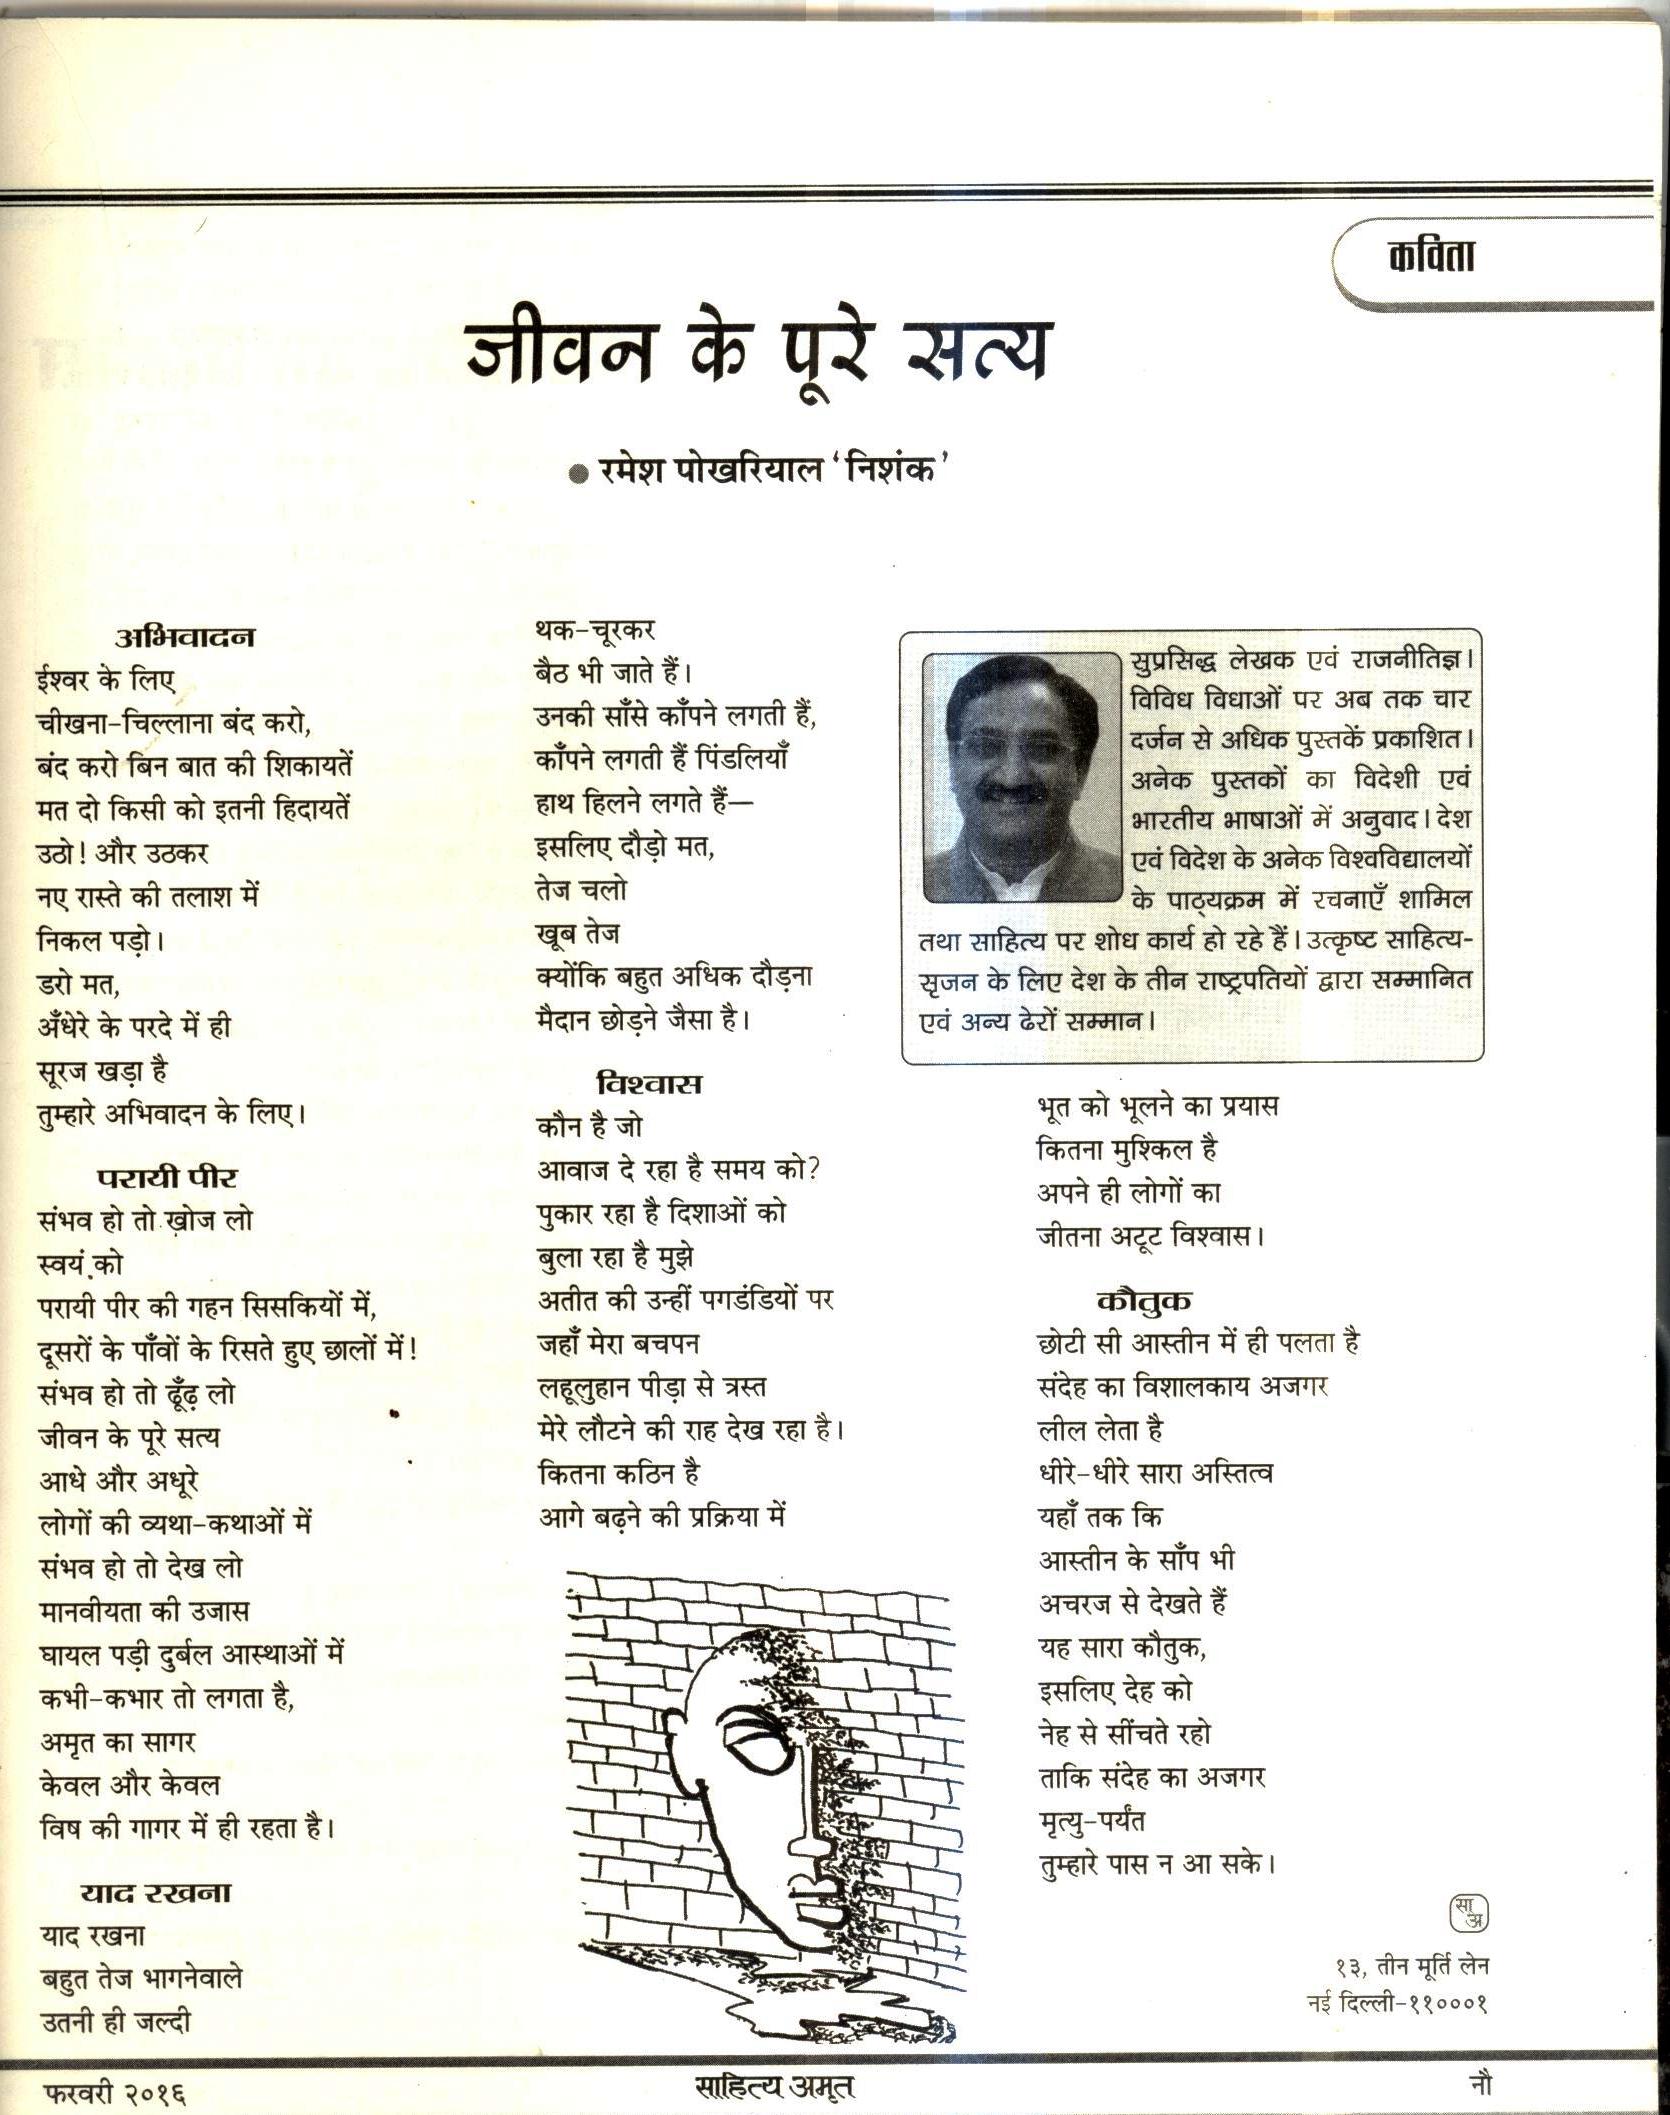 कविता
जीवन के पूरे सत्य
● रमेश पोखरियाल ‘निशंक’
अभिवादन
ईश्वर के लिए
चीखना-चिल्लाना बंद करो,
बंद करो बिन बात की शिकायतें
मत दो किसी को इतनी हिदायतें
उठो! और उठकर
नए रास्ते की तलाश में
निकल पड़ो।
डरो मत,
अँधेरे के परदे में ही
सूरज खड़ा है
तुम्हारे अभिवादन के लिए।
परायी पीर
संभव हो तो खोज लो
स्वयं को
परायी पीर की गहन सिसकियों में,
दूसरों के पाँवों के रिसते हुए छालों में!
संभव हो तो ढूँढ़ लो
जीवन के पूरे सत्य
आधे और अधूरे
लोगों की व्यथा-कथाओं में
संभव हो तो देख लो
मानवीयता की उजास
घायल पड़ी दुर्बल आस्थाओं में
कभी-कभार तो लगता है,
अमृत का सागर
केवल और केवल
विष की गागर में ही रहता है।
याद रखना
याद रखना
बहुत तेज भागनेवाले
उतनी ही जल्दी
थक-चूरकर
बैठ भी जाते हैं।
उनकी साँसे काँपने लगती हैं,
काँपने लगती हैं पिंडलियाँ
हाथ हिलने लगते हैं—
इसलिए दौड़ो मत,
तेज चलो
खूब तेज
क्योंकि बहुत अधिक दौड़ना
मैदान छोड़ने जैसा है।
विश्वास
कौन है जो
आवाज दे रहा है समय को?
पुकार रहा है दिशाओं को
बुला रहा है मुझे
अतीत की उन्हीं पगडंडियों पर
जहाँ मेरा बचपन
लहूलुहान पीड़ा से त्रस्त
मेरे लौटने की राह देख रहा है।
कितना कठिन है
आगे बढ़ने की प्रक्रिया में
सुप्रसिद्ध लेखक एवं राजनीतिज्ञ।
विविध विधाओं पर अब तक चार
दर्जन से अधिक पुस्तकें प्रकाशित।
अनेक पुस्तकों का विदेशी एवं
भारतीय भाषाओं में अनुवाद। देश
एवं विदेश के अनेक विश्वविद्यालयों
के पाठ्यक्रम में रचनाएँ शामिल
तथा साहित्य पर शोध कार्य हो रहे हैं। उत्कृष्ट साहित्य-
सृजन के लिए देश के तीन राष्ट्रपतियों द्वारा सम्मानित
एवं अन्य ढेरों सम्मान।
भूत को भूलने का प्रयास
कितना मुश्किल है
अपने ही लोगों का
जीतना अटूट विश्वास।
कौतुक
छोटी सी आस्तीन में ही पलता है
संदेह का विशालकाय अजगर
लील लेता है
धीरे-धीरे सारा अस्तित्व
यहाँ तक कि
आस्तीन के साँप भी
अचरज से देखते हैं
यह सारा कौतुक,
इसलिए देह को
नेह से सींचते रहो
ताकि संदेह का अजगर
मृत्यु-पर्यंत
तुम्हारे पास न आ सके।
सा
अ
१३, तीन मूर्ति लेन
नई दिल्ली-११०००१
फरवरी २०१६
साहित्य अमृत
नौ